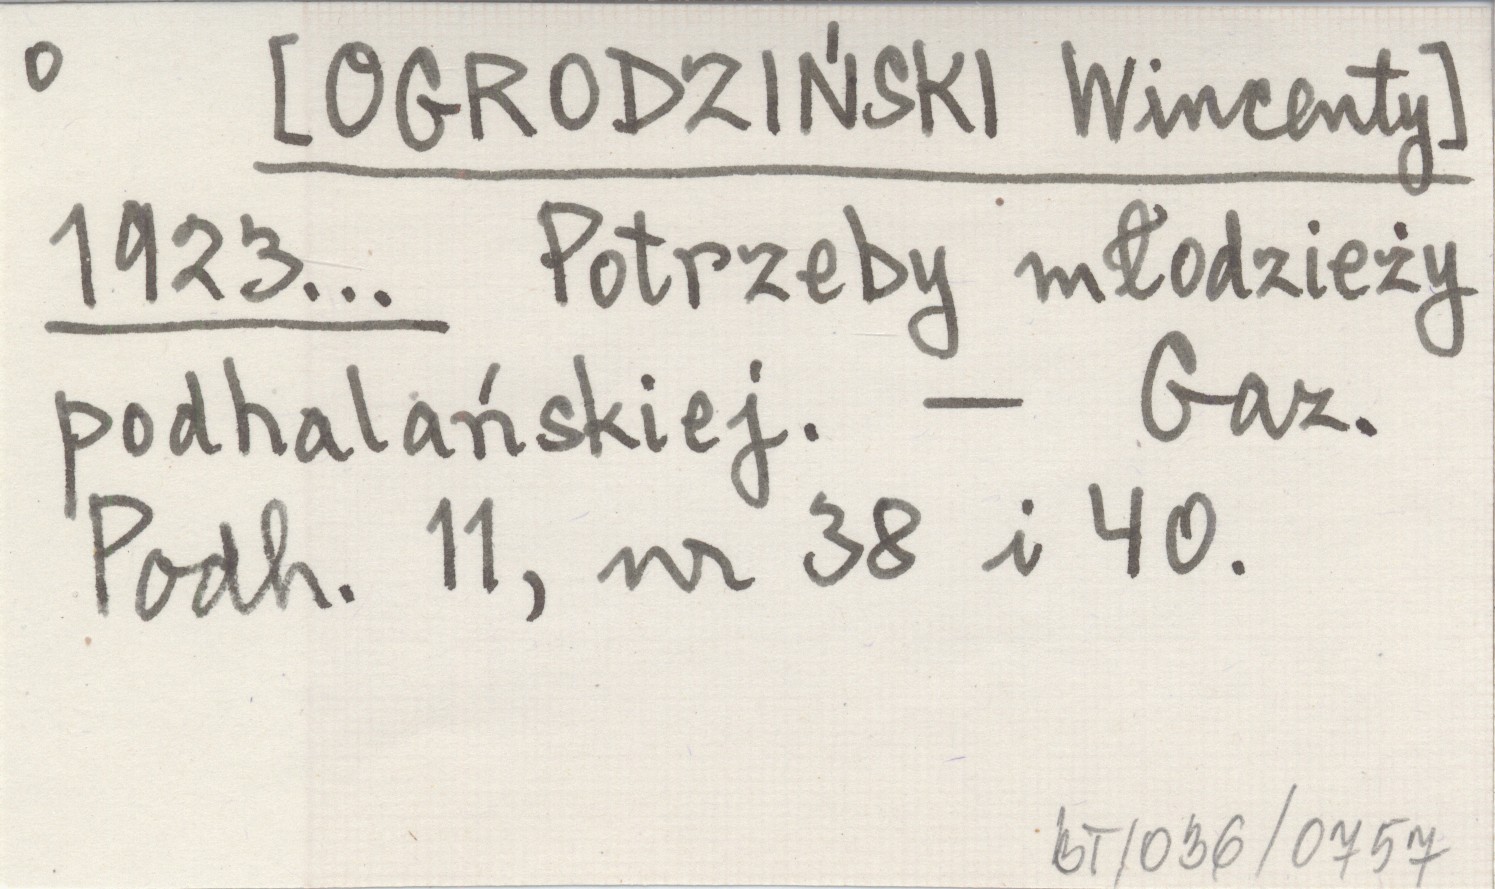 o [OGRODZIŃSKI Wincenty]
1923... Potrzeby młodzieży
podhalańskiej. — Gaz.
Podh. 11, nr 38 i 40.
BT/036/0757